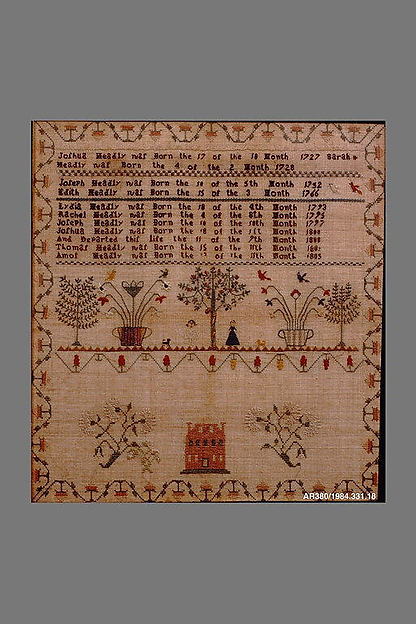 Joshua Headly was Born the 17 of the 10 Month 1727 Sarah
Headly was Born the 4 of the 2 Month 1728
Joseph Headly was Born the 10 of the 5th Month 1752
Edith Headly was Born the 15 of the 3 Month 1766
Lydia Headly was Born the 18 of the 4th Month 1793
Rachel Headly was Born the 4 of the 8th Month 1795
Joseph Headly was Born the 10 of the 10th Month 1797
Joshua Headly was Born the 18 of the Month 1800
And Departed this life the 11 of the 7th Month
Thomas Headly was Born the of the Month
Amos Headly was Born the of the Month 1805
AR380/1984.331.18